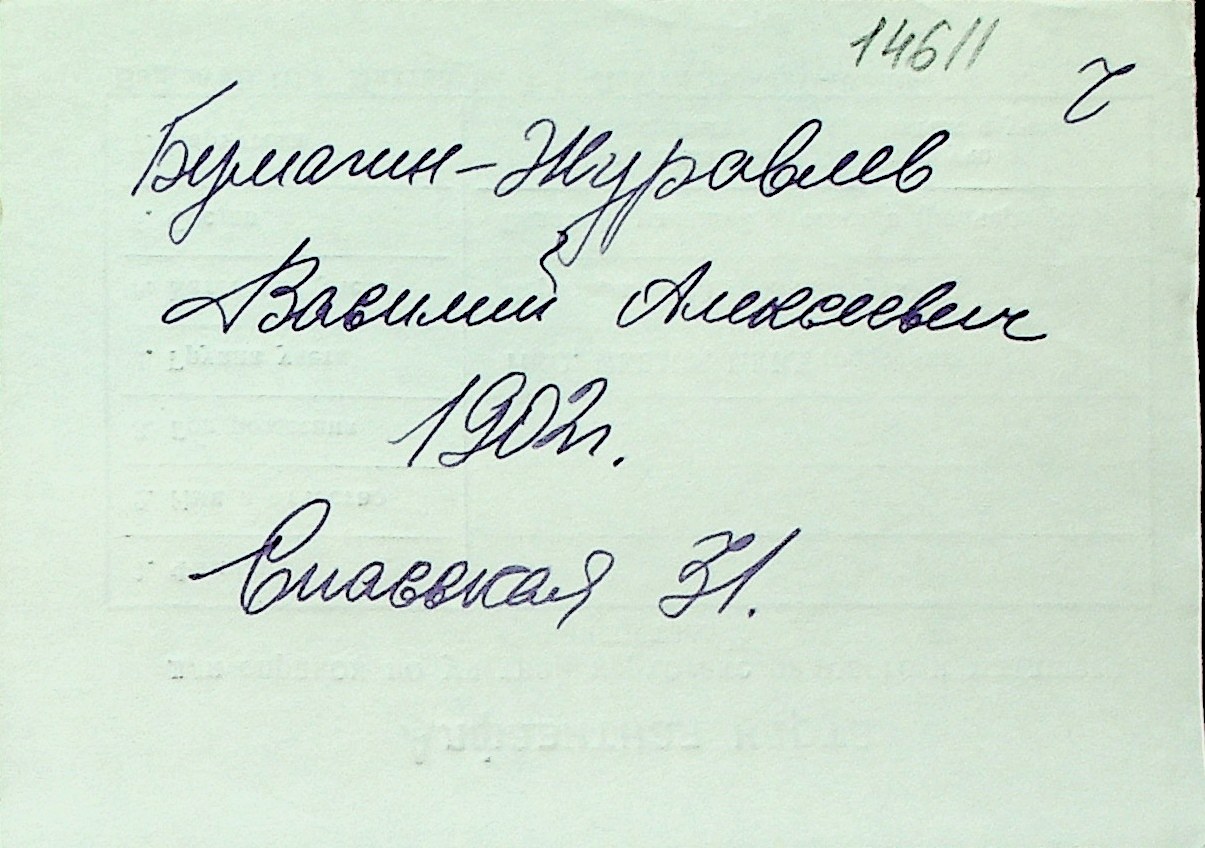 14611
ч
Бумагин-Журавлев
Василий Алексеевич
1902г.
Спасская 31.